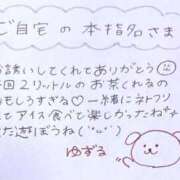 ご自宅の本指名さま
お誘いしてくれてありがとう
回2リットルのお茶くれるの
おもしろすぎる♡一緒にネトフリ
てアイス食べて楽しかったね
だ遊ぼうね
ゆずる